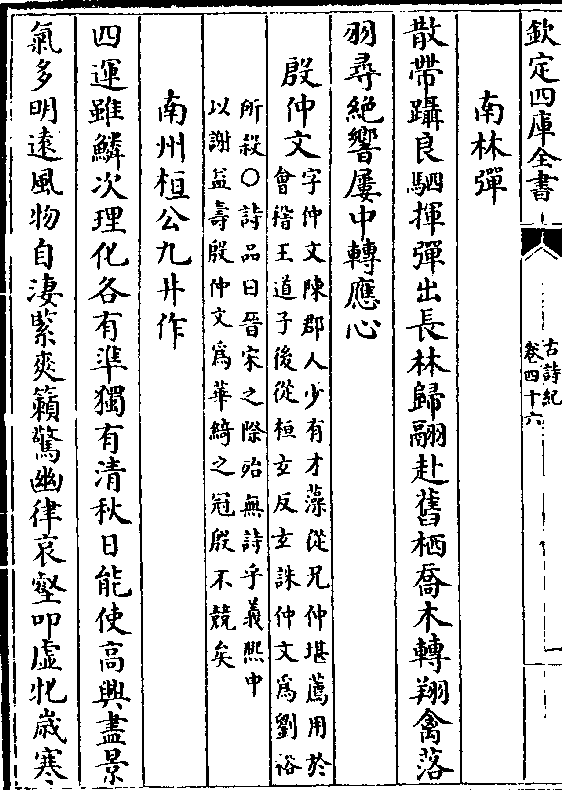 欽定四庫全書
古詩紀
卷四十六
南林彈
散帶躡良駟揮彈出長林歸翮赴舊栖喬木轉翔禽落
羽尋絶響屢中轉應心
殷仲文
字仲文陳郡人少有才藻從兄仲堪薦用於
會稽王道子後從桓玄反玄誅仲文爲劉裕
所殺〇詩品曰晉宋之際殆無詩乎義熙中
以謝益壽殷仲文爲華綺之冠殷不競矣
南州桓公九井作
四運雖鱗次理化各有準獨有清秋日能使高興盡景
氣多明遠風物自凄緊爽籟驚幽律哀壑叩虛牝歳寒